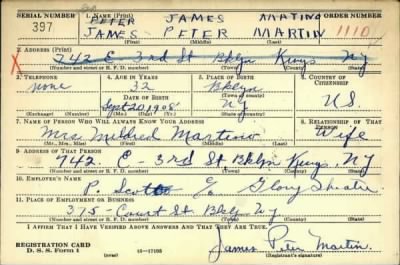 SERIAL NUMBER 1. NAME (Print) ORDER NUMBER
PETER JAMES MARTINO
397 JAMES PETER MARTIN 1110
(First) (Middle) (Last)
2. ADDRESS (Print)
X 742 E 3rd St Bklyn Kings NY
(Number and street or R. F. D. number) (Town) (County) (State)
3. TELEPHONE 4. AGE IN YEARS 5. PLACE OF BIRTH 6. COUNTRY OF CITIZENSHIP
none 32 Bklyn
DATE OF BIRTH (Town or county)
Sept 20 1908 NY U.S.
(Exchange) (Number) (Mo.) (Day) (Yr.) (State or country)
7. NAME OF PERSON WHO WILL ALWAYS KNOW YOUR ADDRESS 8. RELATIONSHIP OF THAT PERSON
Mrs Mildred Martino Wife
(Mr., Mrs., Miss) (First) (Middle) (Last)
9. ADDRESS OF THAT PERSON
742. E - 3rd St Bklyn Kings, NY
(Number and street or R. F. D. number) (Town) (County) (State)
10. EMPLOYER'S NAME
P. Glory Theatre
11. PLACE OF EMPLOYMENT OR BUSINESS
375 - Court St Bklyn NY
(Number and street or R. F. D. number) (Town) (County) (State)
I AFFIRM THAT I HAVE VERIFIED ABOVE ANSWERS AND THAT THEY ARE TRUE.
REGISTRATION CARD James Peter Martin
D. S. S. Form 1 (Registrant's signature)